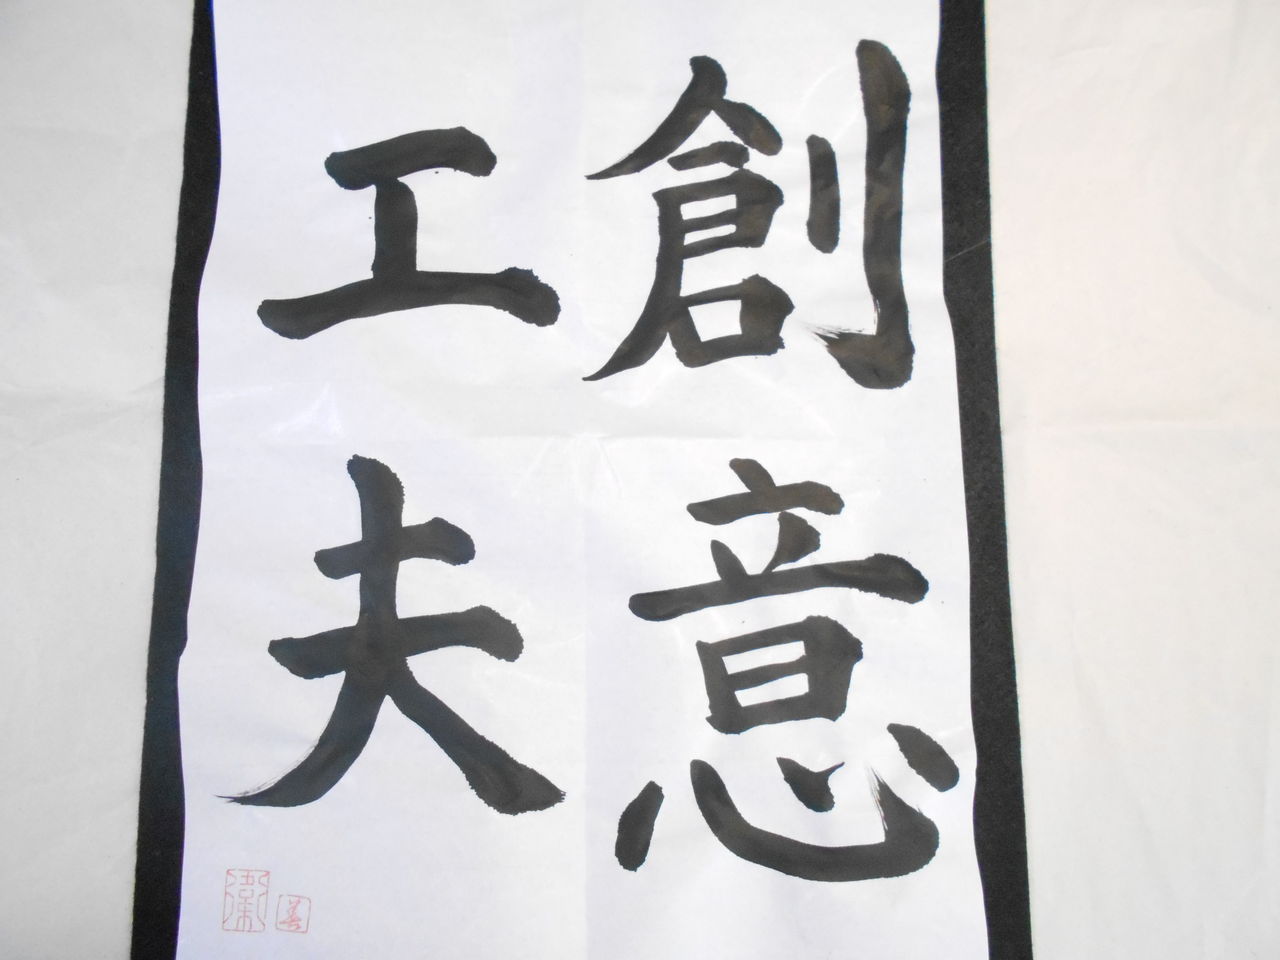 創意
工夫